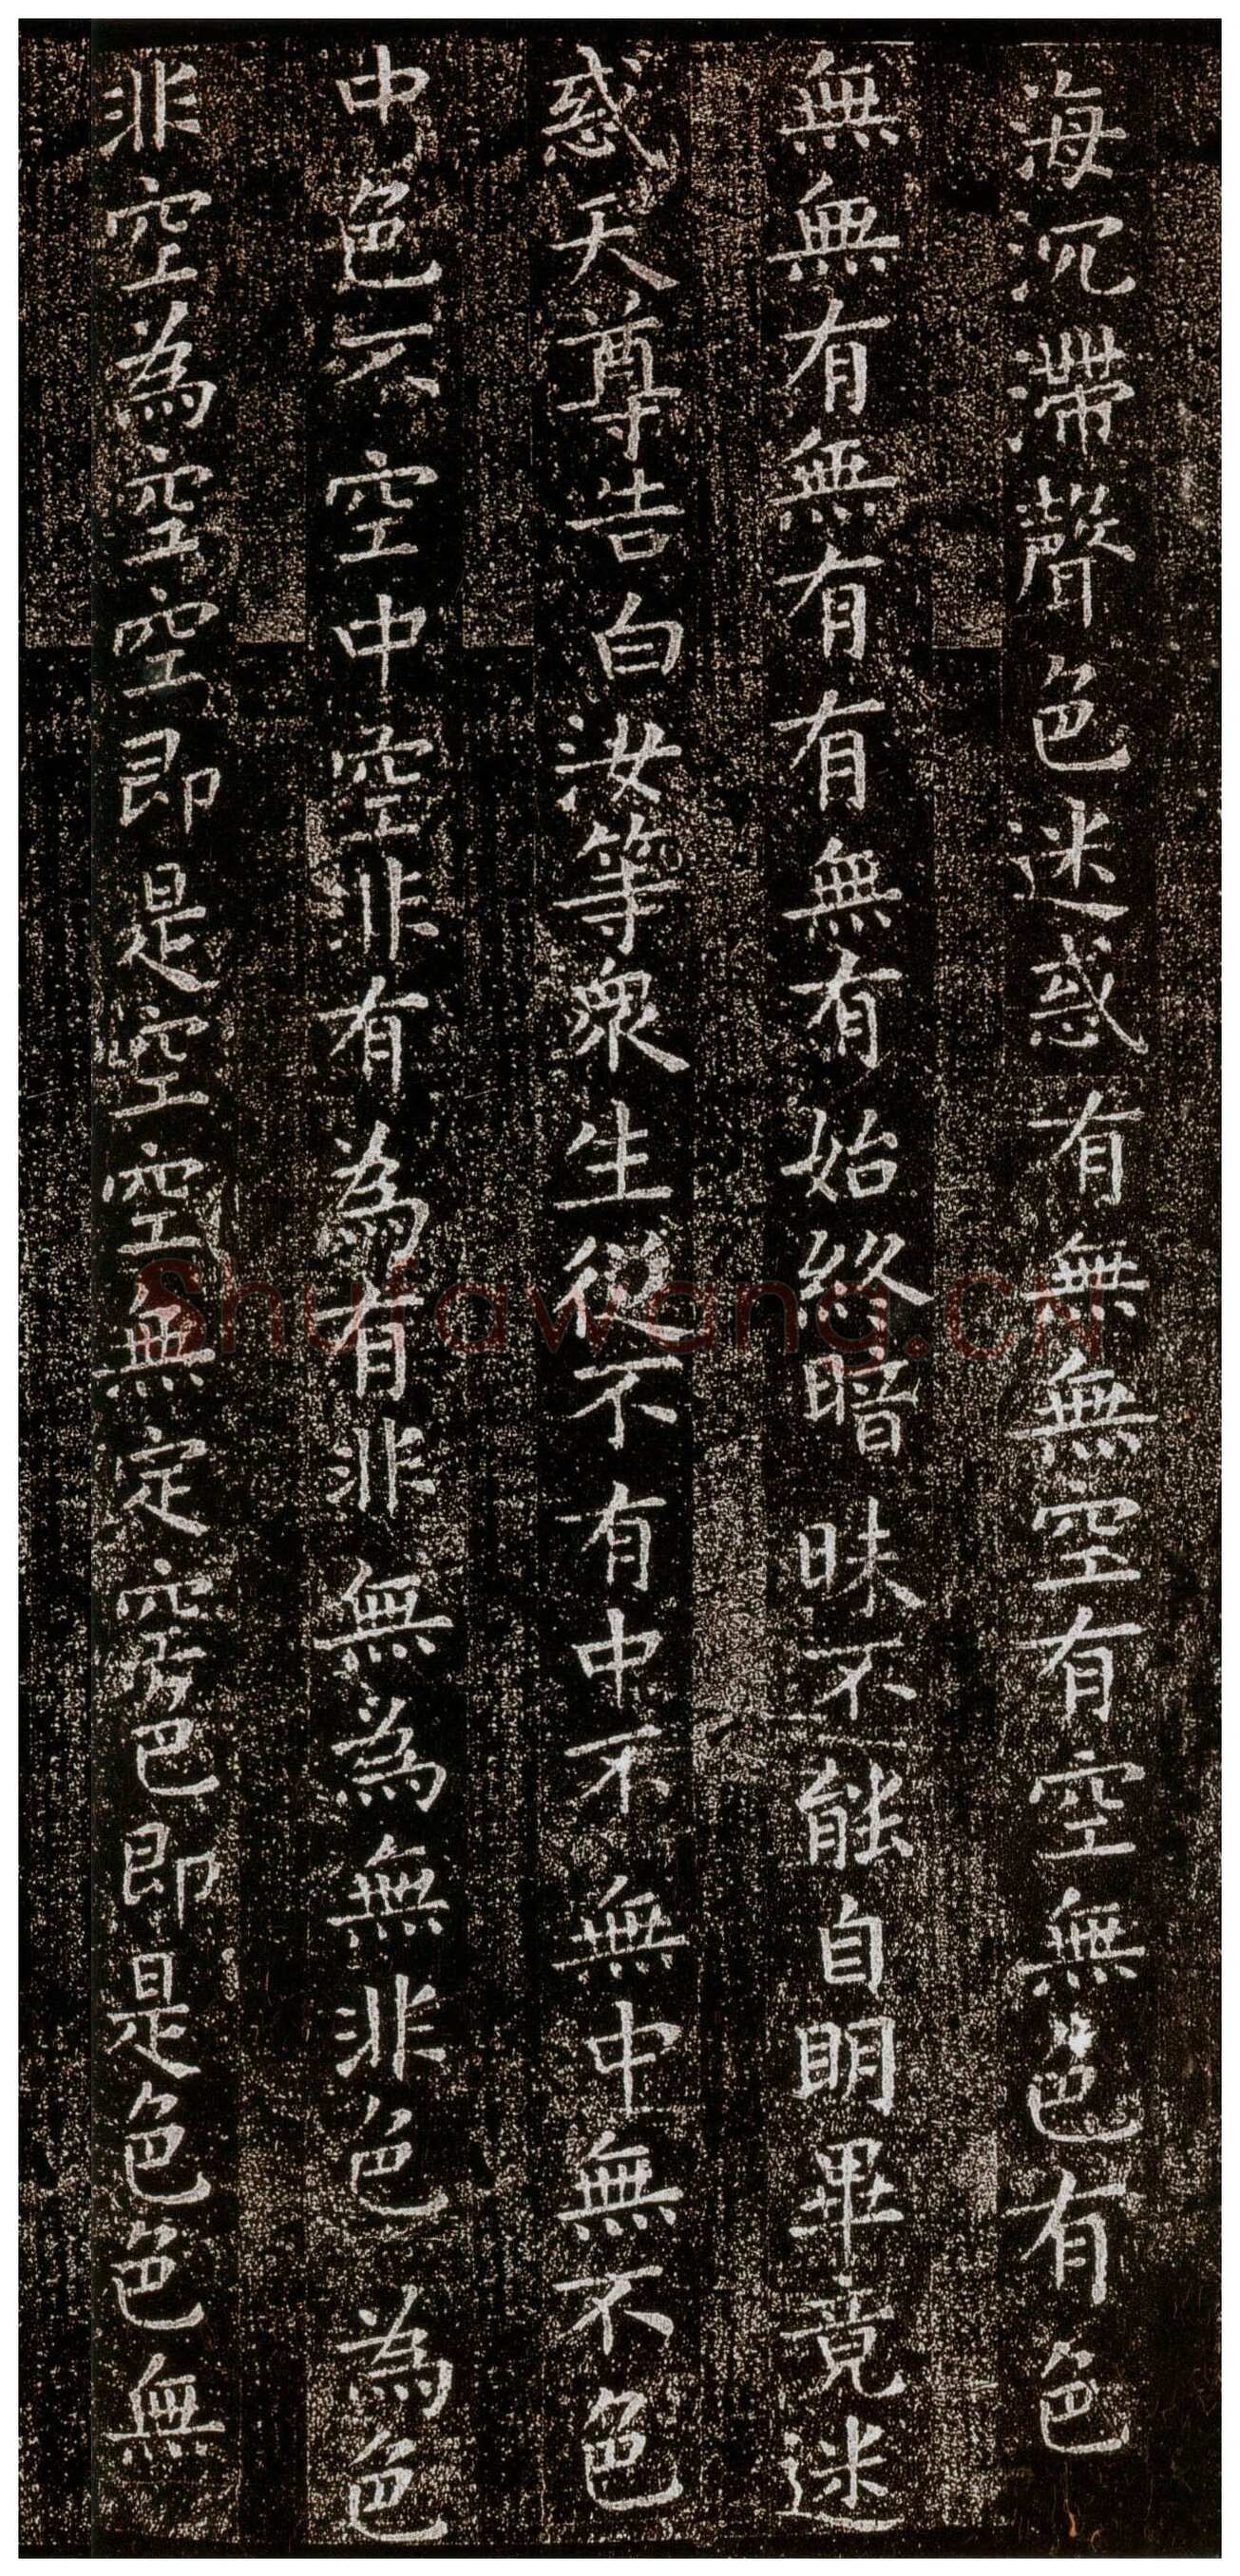 海沉滯聲色迷惑有無無空有空無色有色
無無有無有有無有始終暗昧不能自明畢竟迷
惑天尊告白汝等眾生從不有中不無中無不色
中色不空中空非有為有非無為無非色為色
非空為空空即是空空無定空色即是色色無
Shufawang.CN